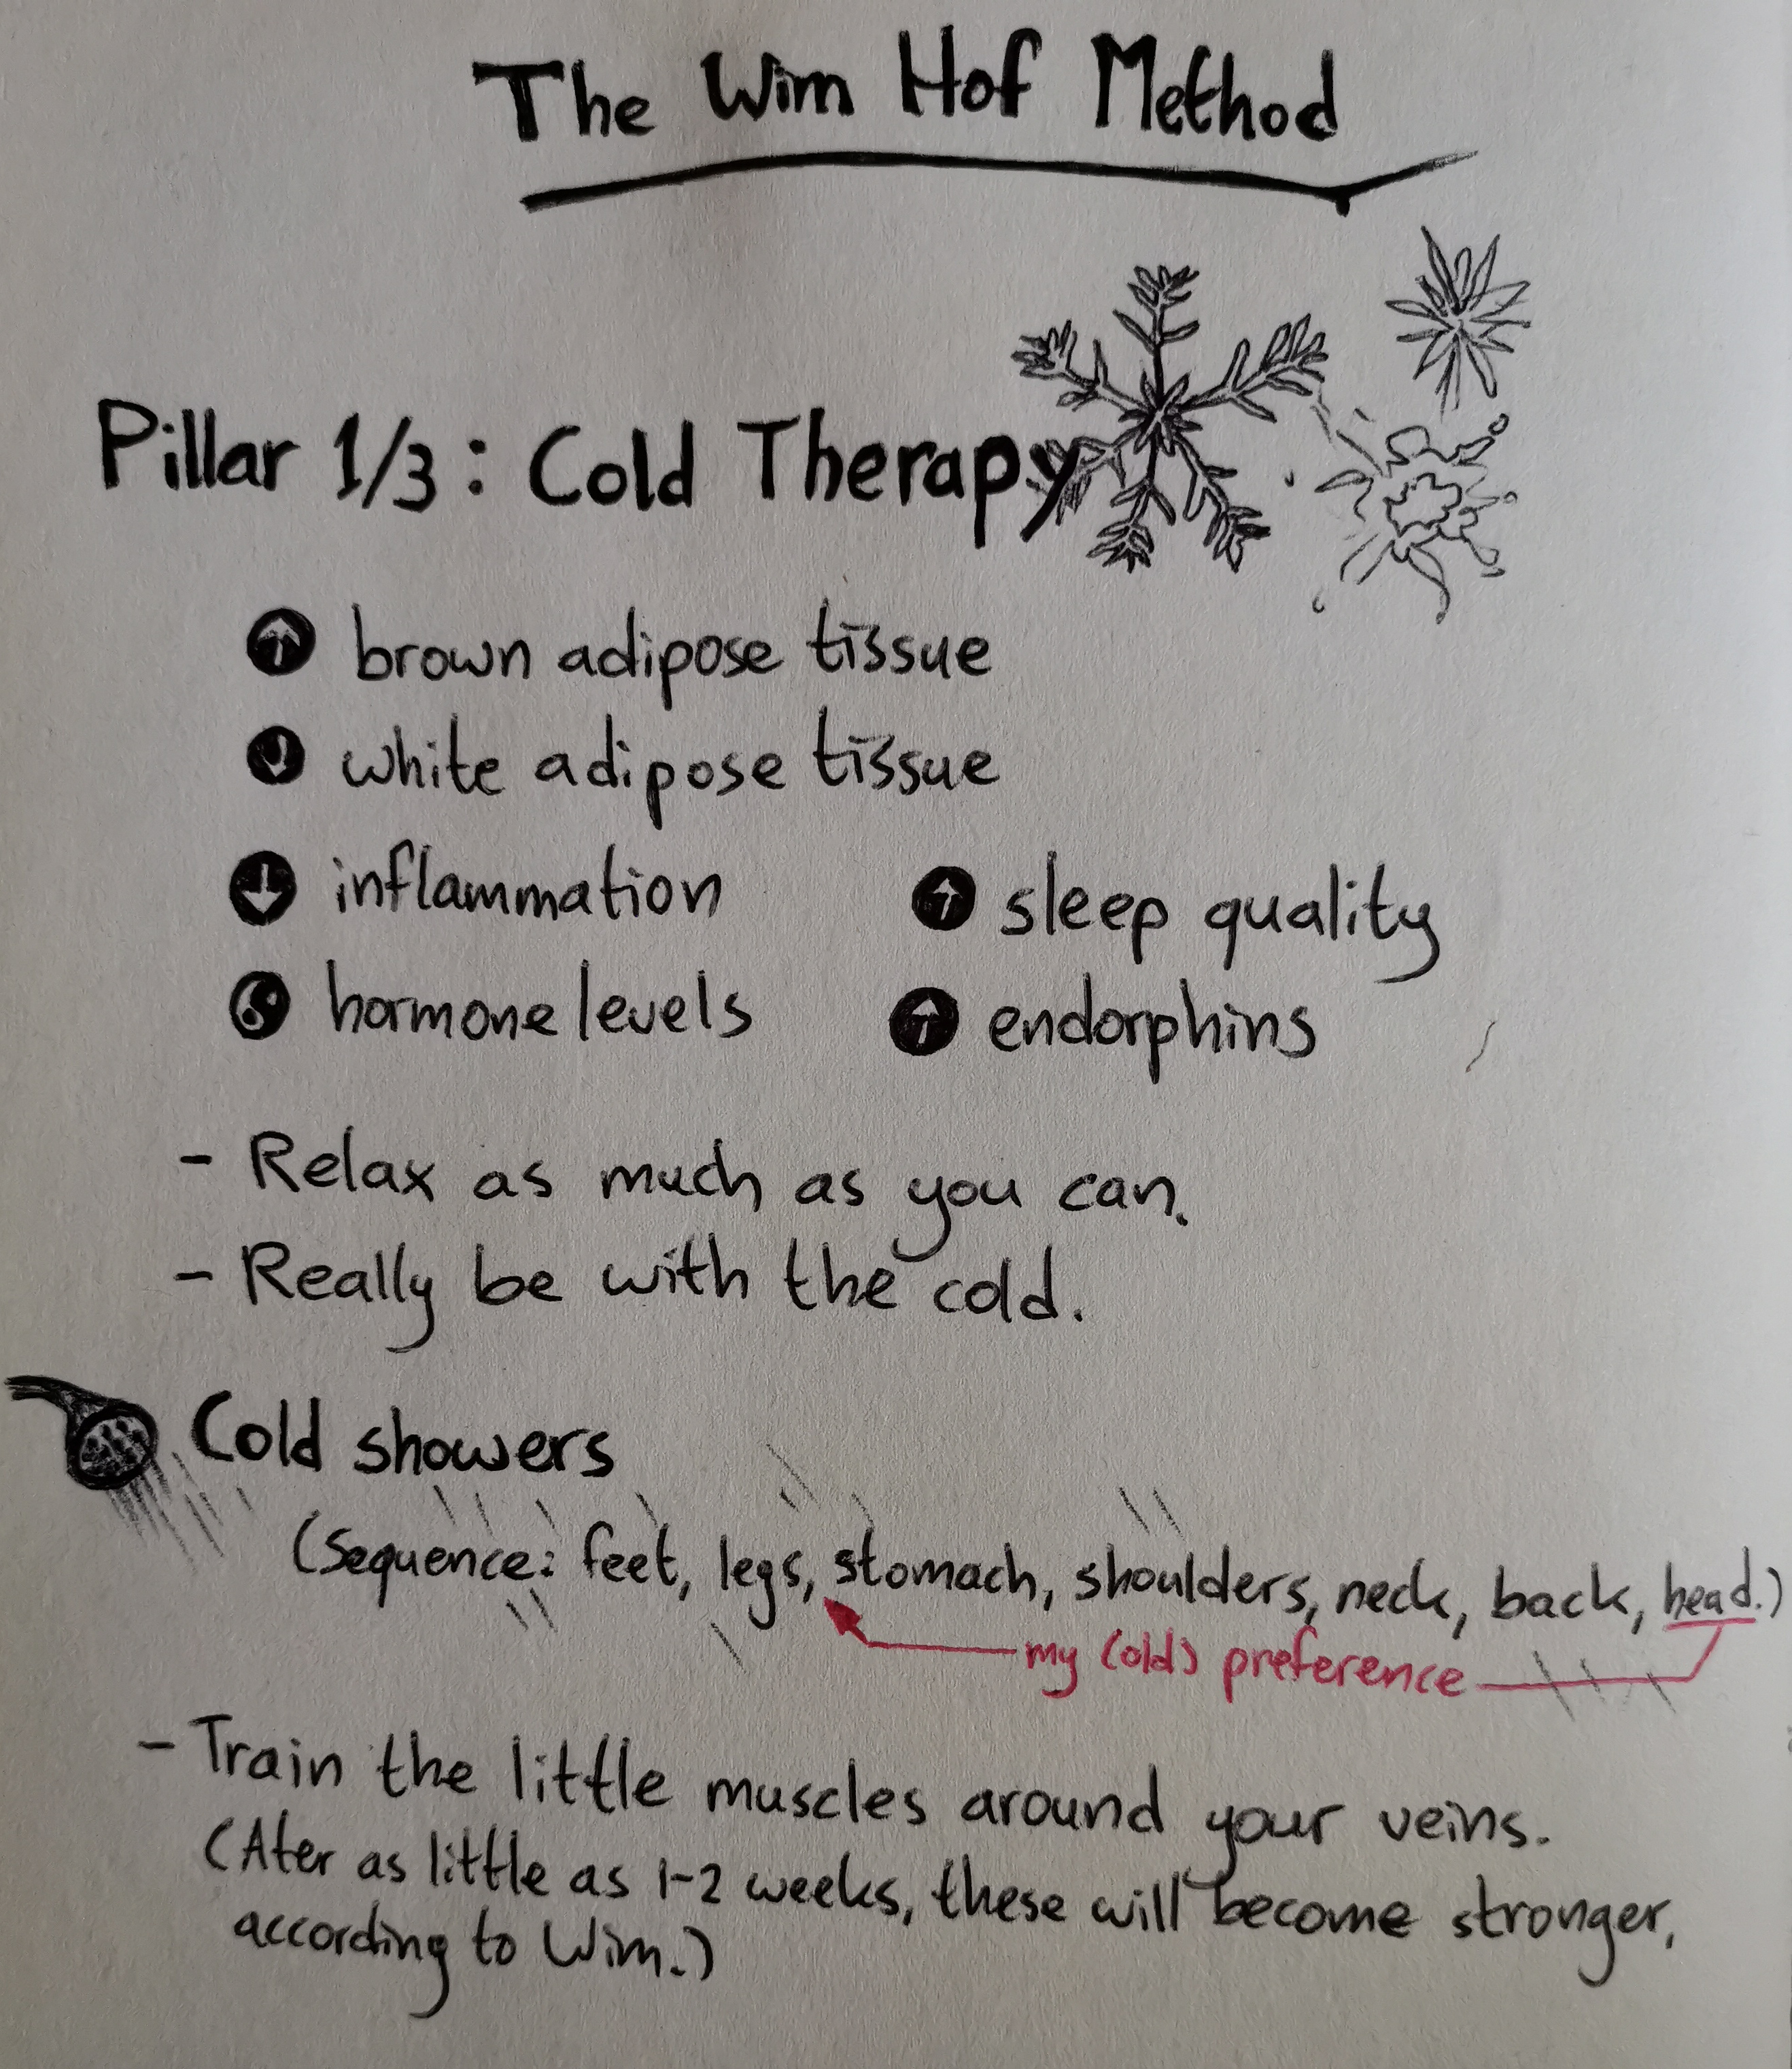 The Wim Hof Method
Pillar 1/3: Cold Therapy
↑ brown adipose tissue
↓ white adipose tissue
↓ inflammation
↑ sleep quality
hormone levels
↑ endorphins
- Relax as much as you can.
- Really be with the cold.
Cold showers
(Sequence: feet, legs, stomach, shoulders, neck, back, head.)
my (old) preference
- Train the little muscles around your veins.
(Ater as little as 1-2 weeks, these will become stronger,
according to Wim.)